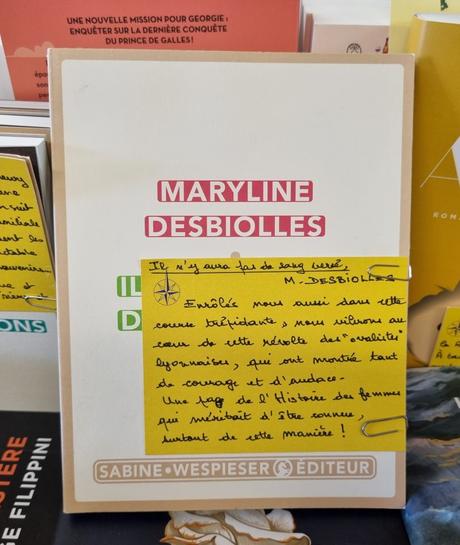 UNE NOUVELLE MISSION POUR GEORGIE :
ENQUÊTER SUR LA DERNIÈRE CONQUÊTE
DU PRINCE DE GALLES !
MARYLINE
DESBIOLLES
IL
D
Il n'y aura pas de sang versé,
M. DESBIOLLES
Enrôlés nous aussi dans cette
course trépidante, nous vibrons au
cœur de cette révolte des "ovalistes"
lyonnaises, qui ont montré tant
de courage et d'audace.
Une page de l'Histoire des femmes
qui méritait d'être connue,
surtout de cette manière !
SABINE WESPIESER ÉDITEUR
ONS
STÈRE
GE FILIPPINI
A
ROM